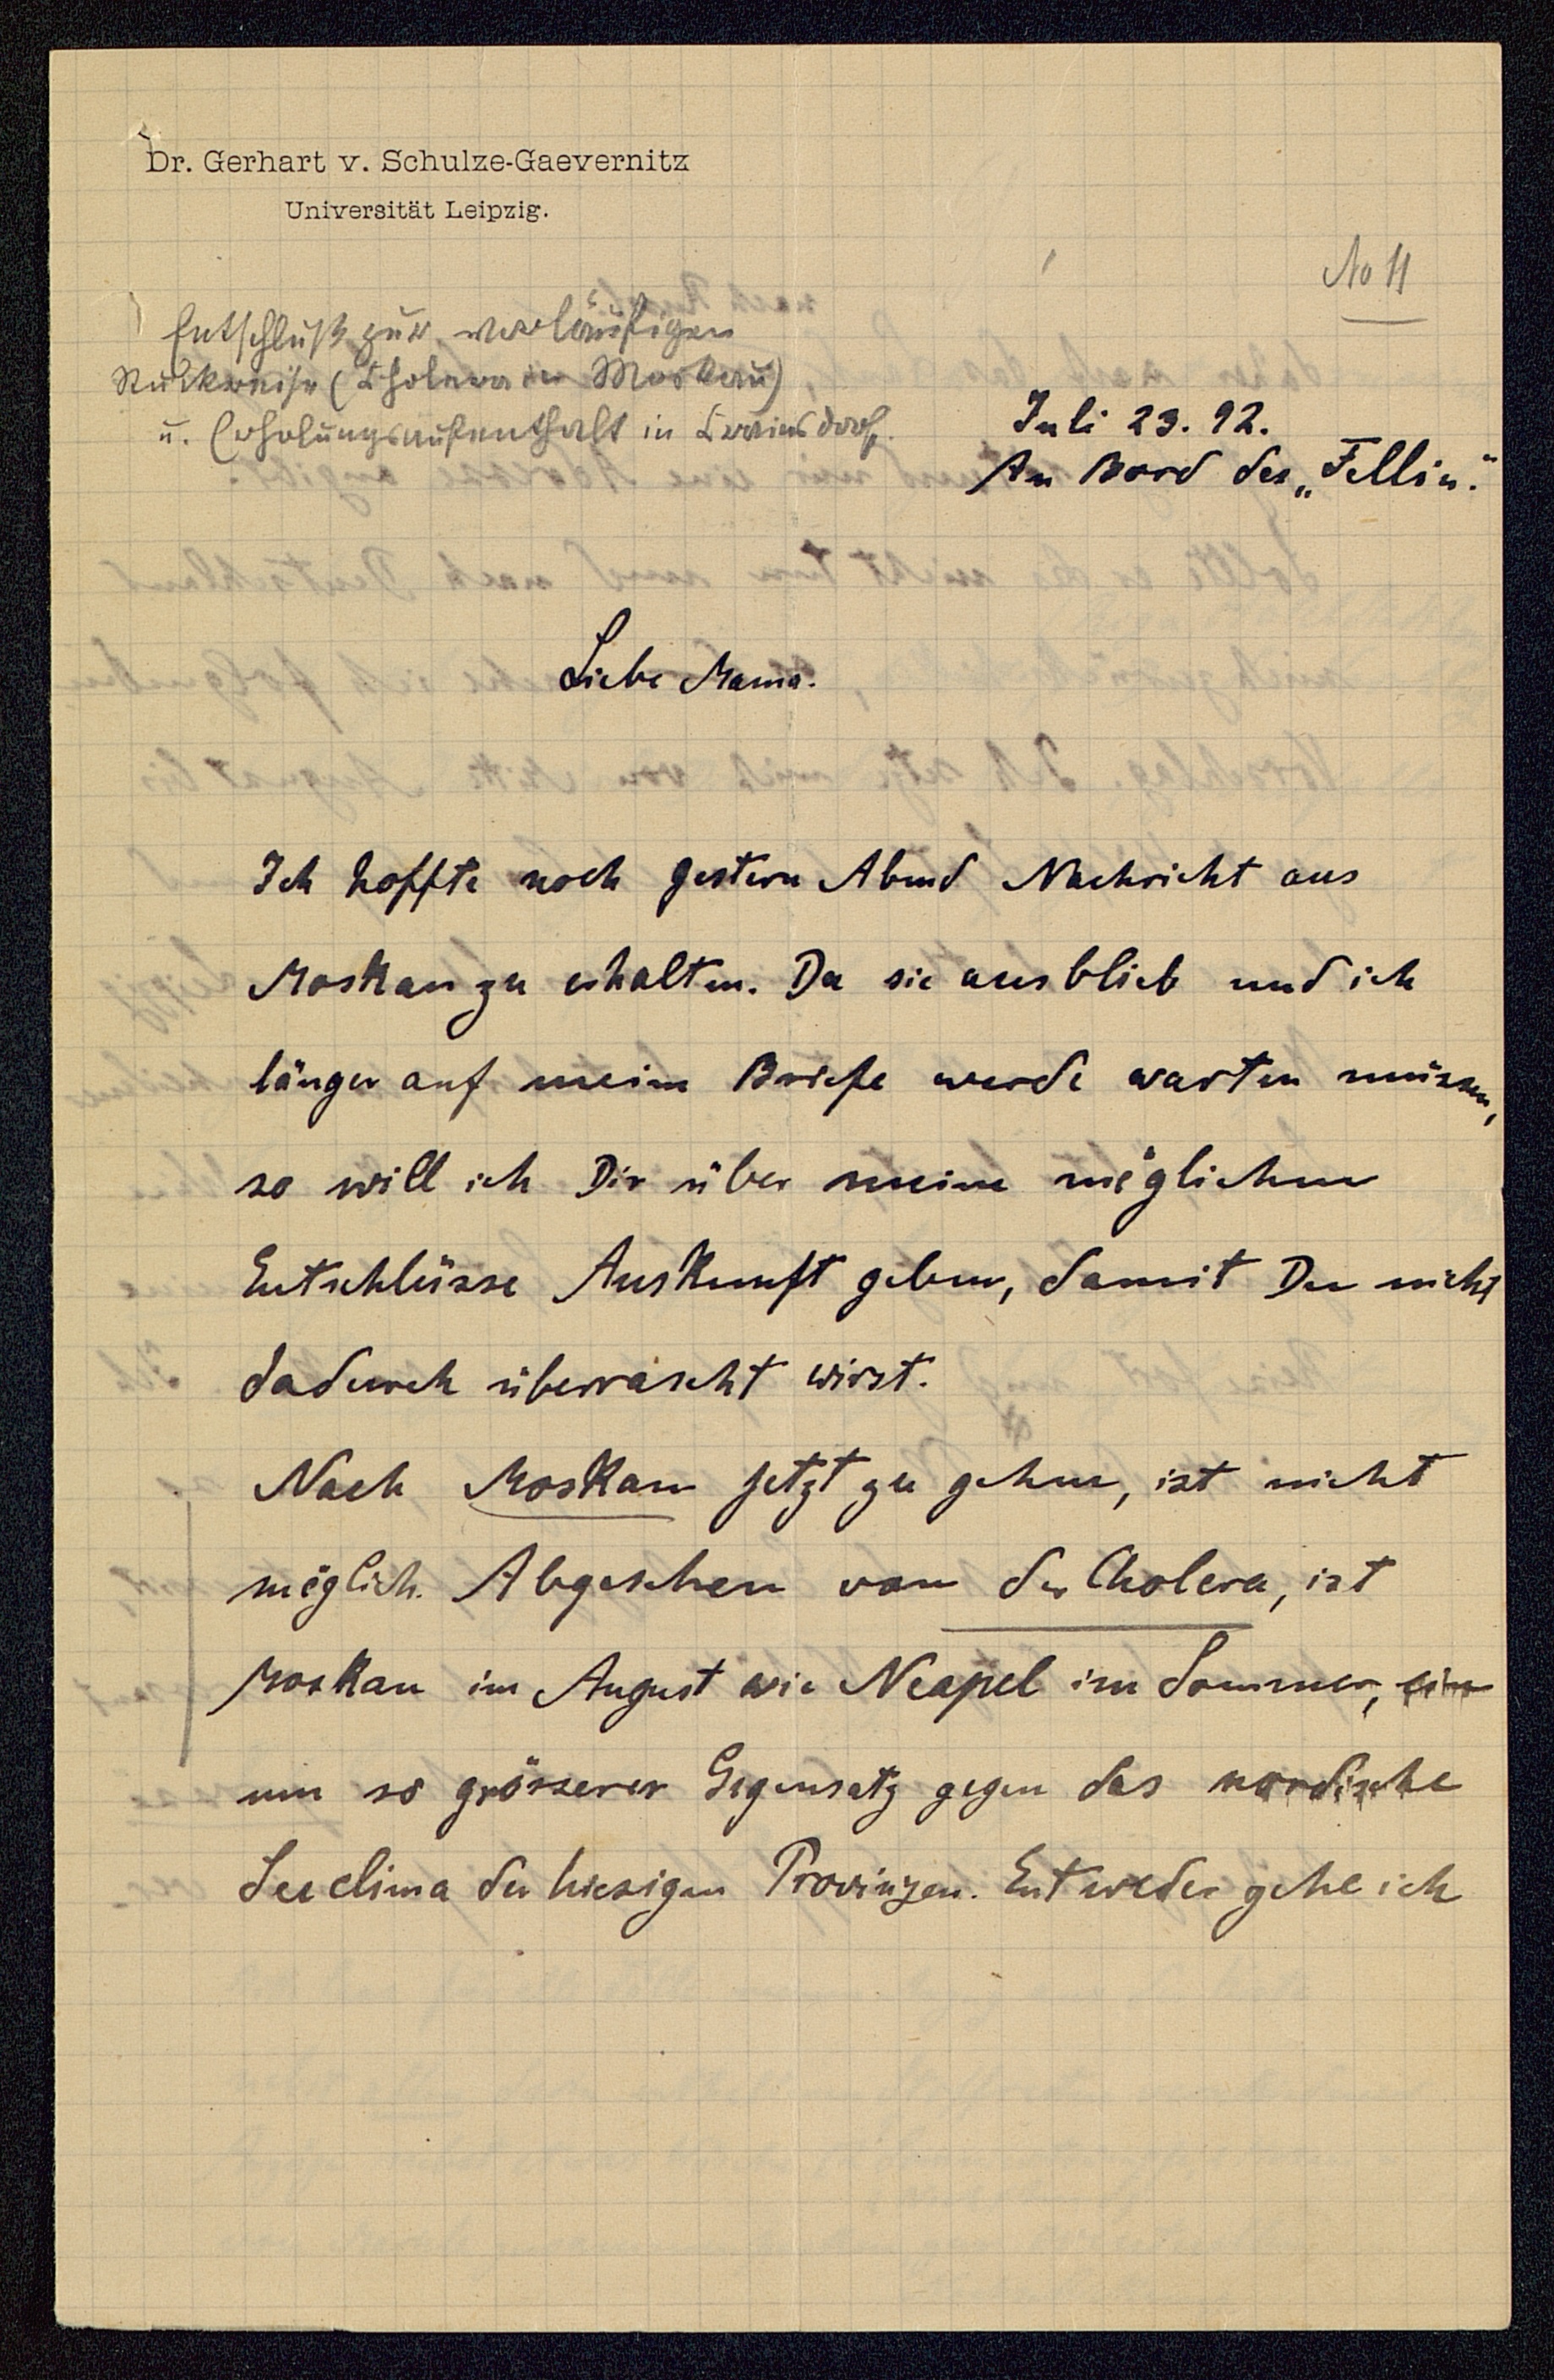 Dr. Gerhart v. Schulze-Gaevernitz
Universität Leipzig.
No 11
Entschluß zur vorläufigen
Rückreise (Cholera in Moskau)
u. Erholungsaufenthalt in Krainsdorf.
Juli 23. 92.
An Bord des „Fellin."
Liebe Mama.
Ich hoffte noch gestern Abend Nachricht aus
Moskau zu erhalten. Da sie ausblieb und ich
länger auf meine Briefe werde warten müssen,
so will ich Dir über meine möglichen
Entschlüsse Auskunft geben, damit Du nicht
dadurch überrascht wirst.
Nach Moskau jetzt zu gehen, ist nicht
möglich. Abgesehen von der Cholera, ist
Moskau im August wie Neapel im Sommer, ein
um so grösserer Gegensatz gegen das nordische
Seeclima der hiesigen Provinzen. Entweder gehe ich